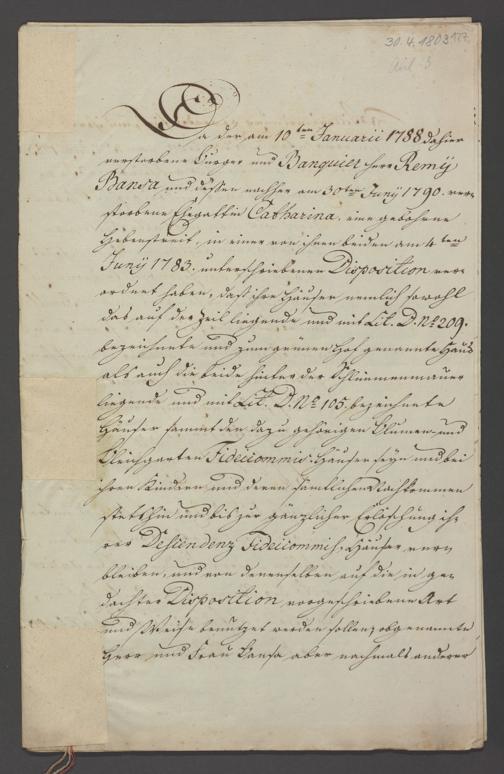 30.4.1803
Da der am 10ten Januarii 1788 dahier
verstorbene Burger und Banquier Herr Remÿ
Bansa und dessen nachher am 30ten Junÿ 1790. ver-
storbene Ehegattin Catharina, eine gebohrne
Hebenstreit, in einer von ihnen beiden am 4ten
Junÿ 1783. unterschriebenen Disposition ver-
ordnet haben, daß ihre Häuser nemlich sowohl
das auf der Zeil liegende und mit Lit. D. No 209.
bezeichnete und zum grünen Hof genannte Haus
als auch die beide hinter der Schlimmenmauer
liegende und mit Lit. D. No 105. bezeichnete
Häuser sammt den dazu gehörigen Blumen- und
Bleichgarten Fideicommis-Häuser seyn und bei
ihren Kindern und deren sämtlichen Nachkommen
stetshin und bis zur gänzlicher Erlöschung ih-
rer Descendenz Fideicommiß-Häuser
bleiben, und von denenselben auf die in ge-
dachter Disposition vorgeschriebene Art
und Weise benutzet werden sollen; obgenannte
Herr und Frau Bansa aber nachmals anderer